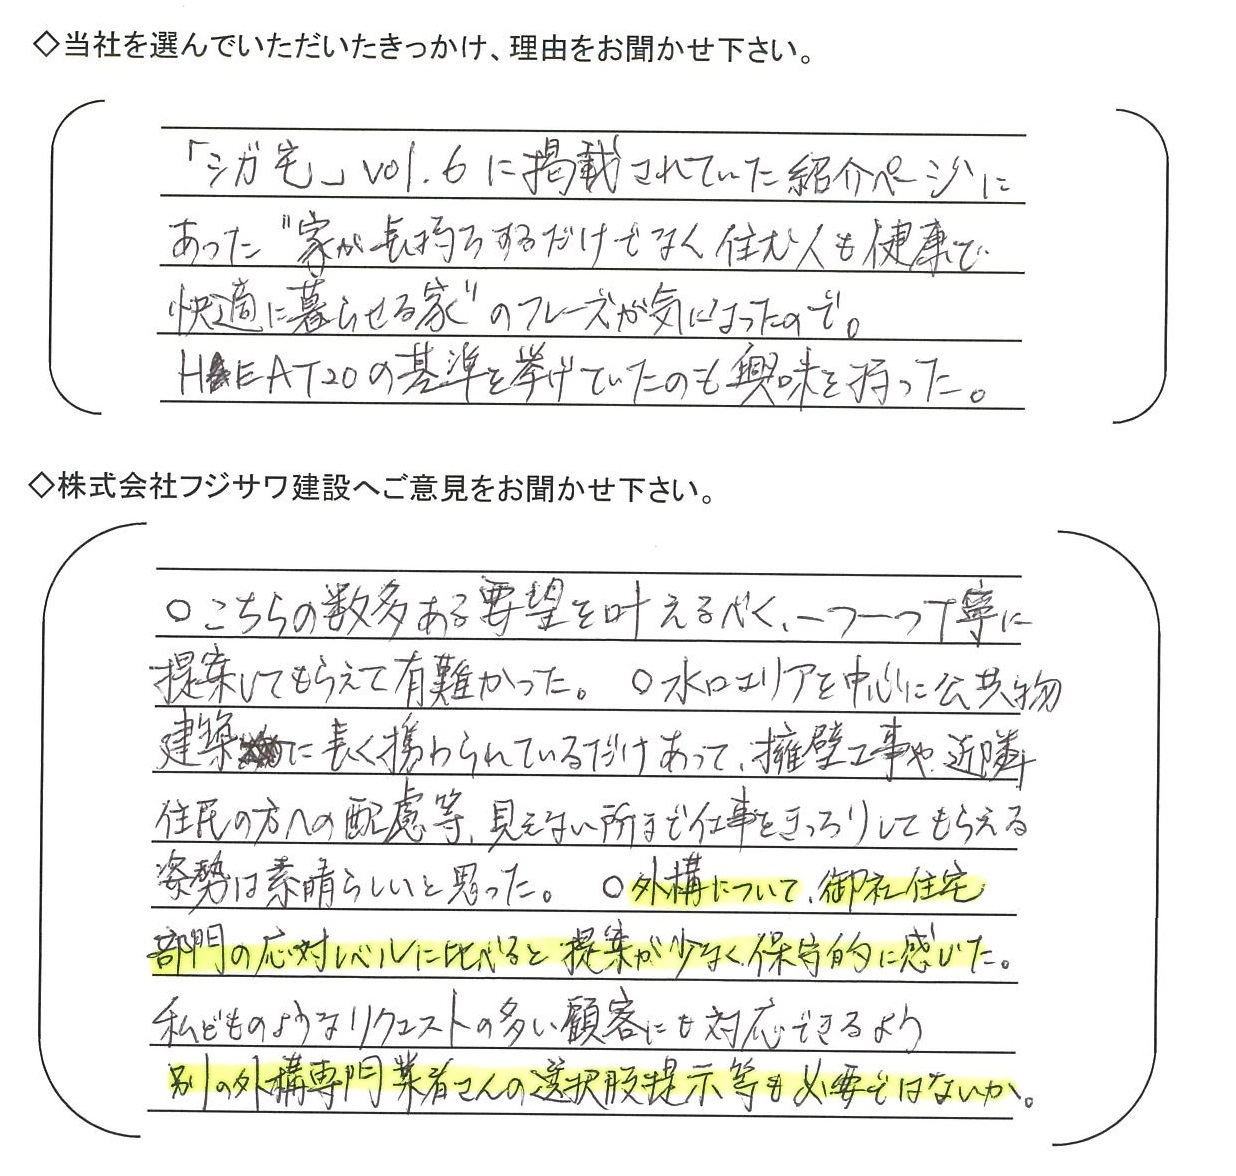 ◇当社を選んでいただいたきっかけ、理由をお聞かせ下さい。
「シガ宅」vol.6に掲載されていた紹介ページに
あった"家が長持ちするだけでなく住む人も健康で
快適に暮らせる家"のフレーズが気になったので。
HEAT20の基準を挙げていたのも興味を持った。
◇株式会社フジサワ建設へご意見をお聞かせ下さい。
○こちらの数多ある要望を叶えるべく、一つ一つ丁寧に
提案してもらえて有難かった。 ○水口エリアを中心に公共物
建築に長く携わられているだけあって、擁壁工事や、近隣
住民の方への配慮等、見えない所まで仕事をきっちりしてもらえる
姿勢は素晴らしいと思った。 ○外構について、御社住宅
部門の応対レベルに比べると提案が少なく、保守的に感じた。
私どものようなリクエストの多い顧客にも対応できるよう
別の外構専門業者さんの選択肢提示等も必要ではないか。